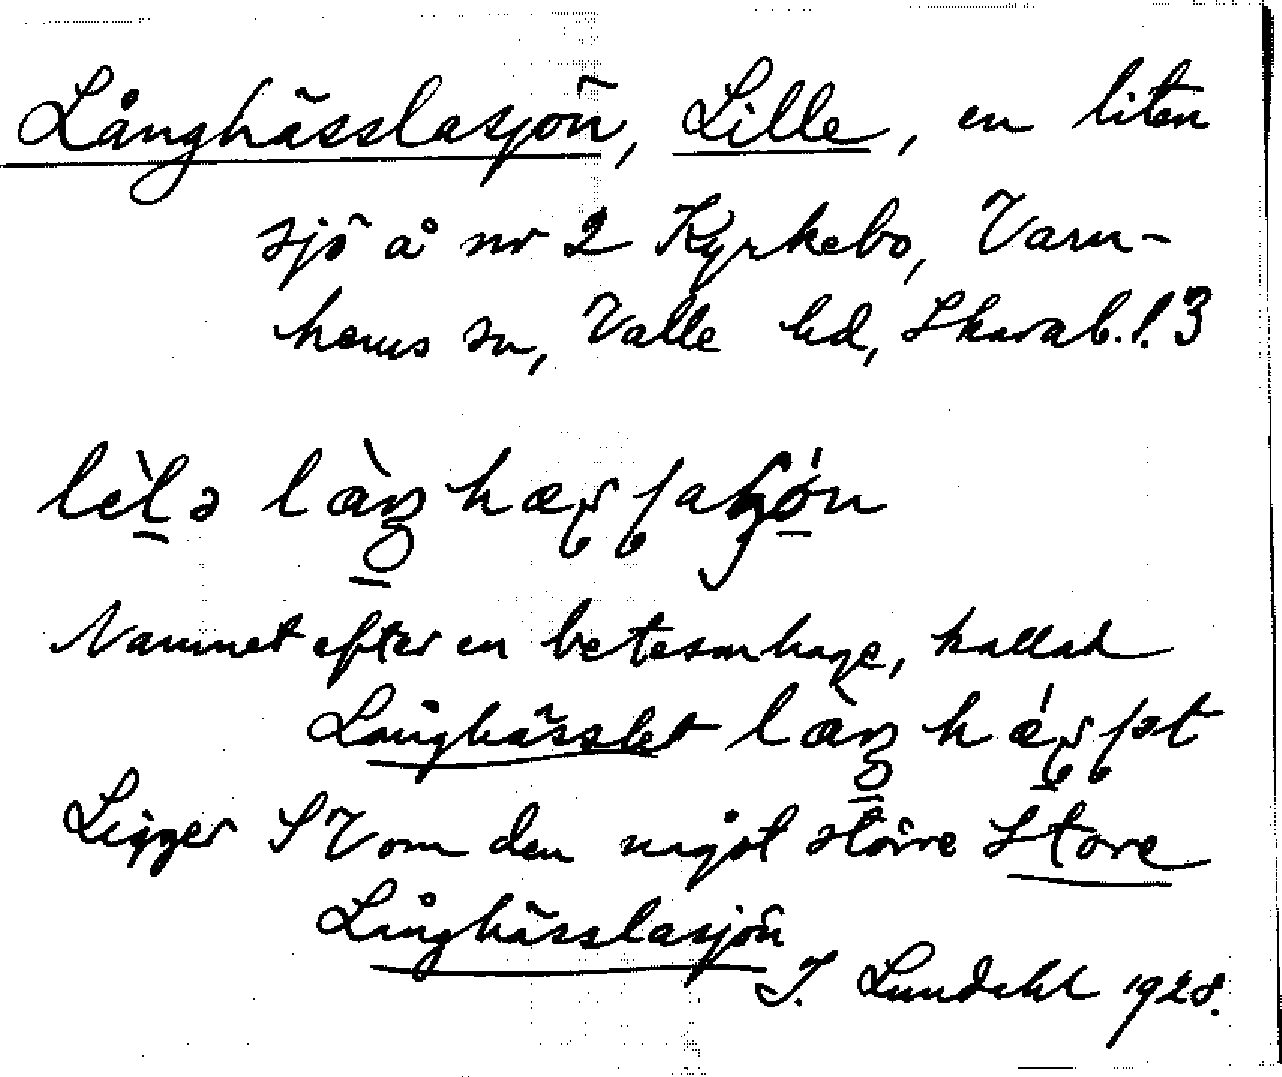 Långhässlasjön, Lille, en liten
sjö å nr 2 Kyrkebo, Varn-
hems sn, Valle hd, Skarab. l. 3
Namnet efter en beteshage, kallad
Långhässlet
Ligger SV om den något större Store
Långhässlasjön
I. Lundahl 1928.